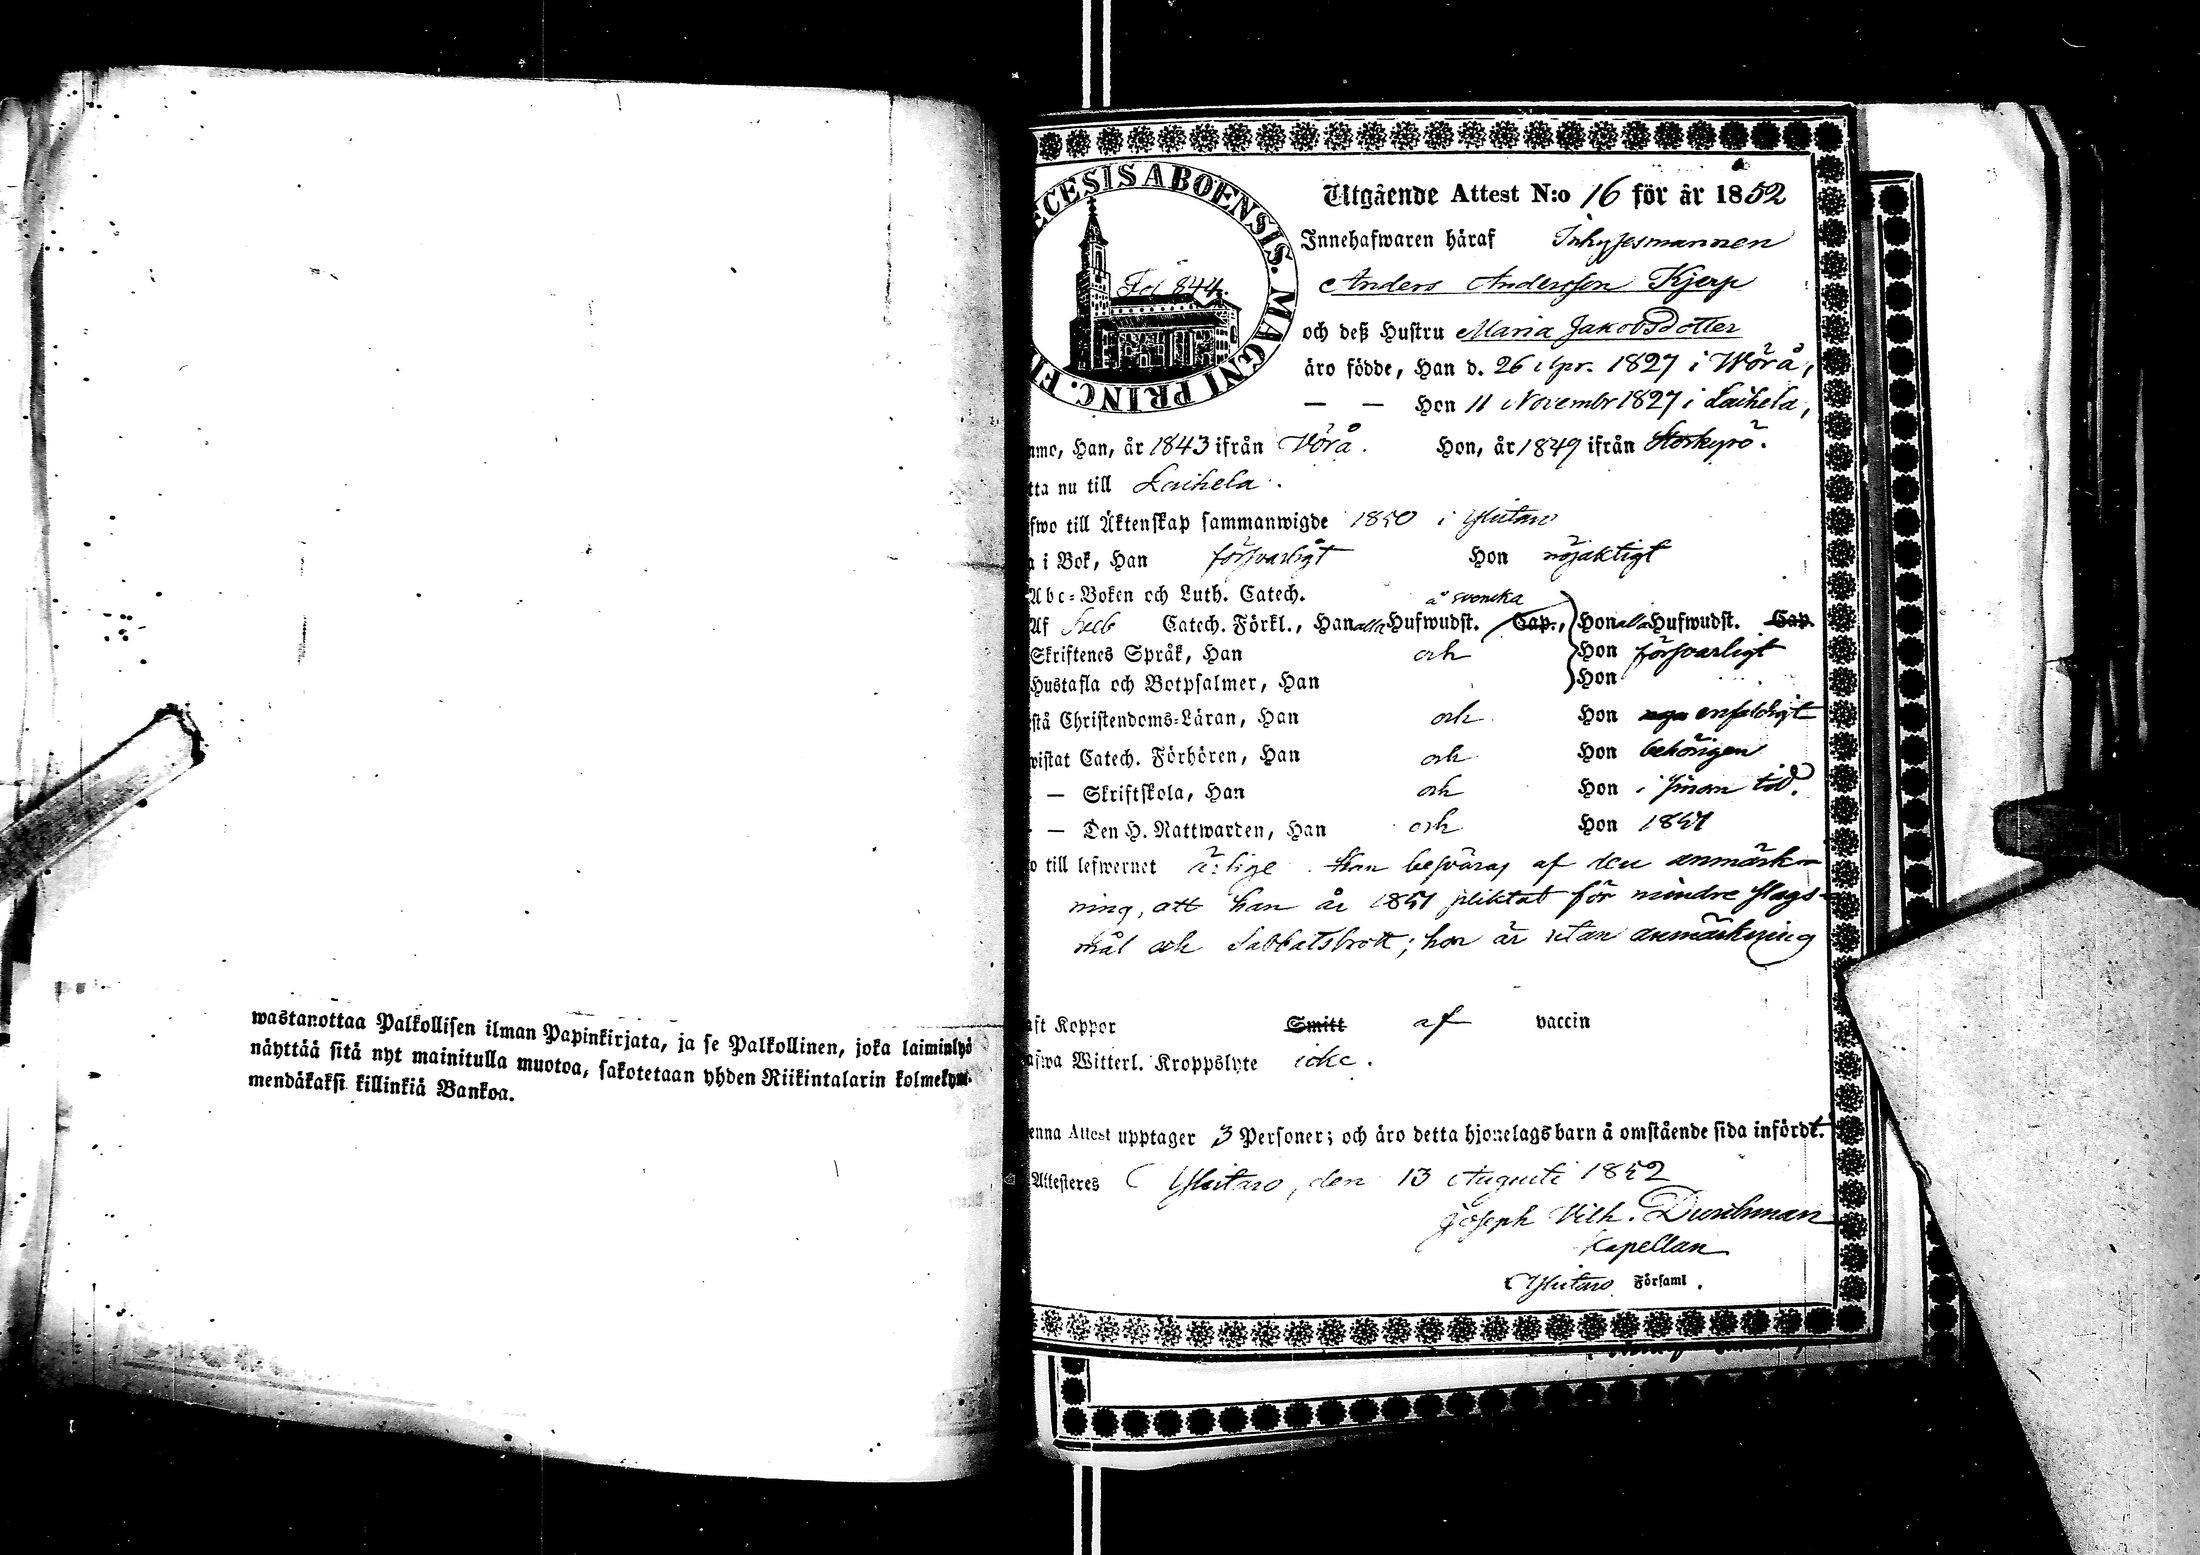 wastanottaa Palkollisen ilman Papinkirjata, ja se Palkollinen, joka laiminlyö
näyttää sitä nyt mainitulla muotoa, sakotetaan yhden Riikintalarin kolmekym-
mendäkaksi killinkiä Bankoa.
ECESIS ABOENSIS. MAGNI PRINC. FI
Fol 844.
Utgående Attest N:o 16 för år 1852
Innehafwaren häraf Inhysesmannen
Anders Andersson Kjerp
och deß Hustru Maria Jakobsdotter
äro födde, Han d. 26 Apr. 1827 i Wörå,
— — Hon 11 Novembr 1827 i Laihela,
mo, Han, år 1843 ifrån Vörå. Hon, år 1849 ifrån Storkyrö.
tta nu till Laihela.
fwo till Äktenskap sammanwigde 1850 i Ylistaro
i Bok, Han försvarligt Hon nöjaktigt
Abc-Boken och Luth. Catech. å svenska
Af Sveb Catech. Förkl., Han alla Hufwudst. Cap., Hon alla Hufwudst. Cap.
Skriftenes Språk, Han och Hon försvarligt
Hustafla och Botpsalmer, Han Hon
stå Christendoms-Läran, Han och Hon enfaldigt
wistat Catech. Förhören, Han och Hon behörigen
— Skriftskola, Han och Hon i sinom tid.
— Den H. Nattwarden, Han och Hon 1851
o till lefwernet ärlige. Han besväras af den anmärk-
ning, att han år 1851 pliktat för mindre slags-
mål och Sabbatsbrott; hon är utan anmärkning
aft Koppor Smitt af vaccin
afwa Witterl. Kroppslyte icke.
enna Attest upptager 3 Personer; och äro detta hjonelags barn å omstående sida infördt.
Attesteres Ylistaro, den 13 Augusti 1852
Joseph Vilh. Durchman
Kapellan
Ylistaro Församl.